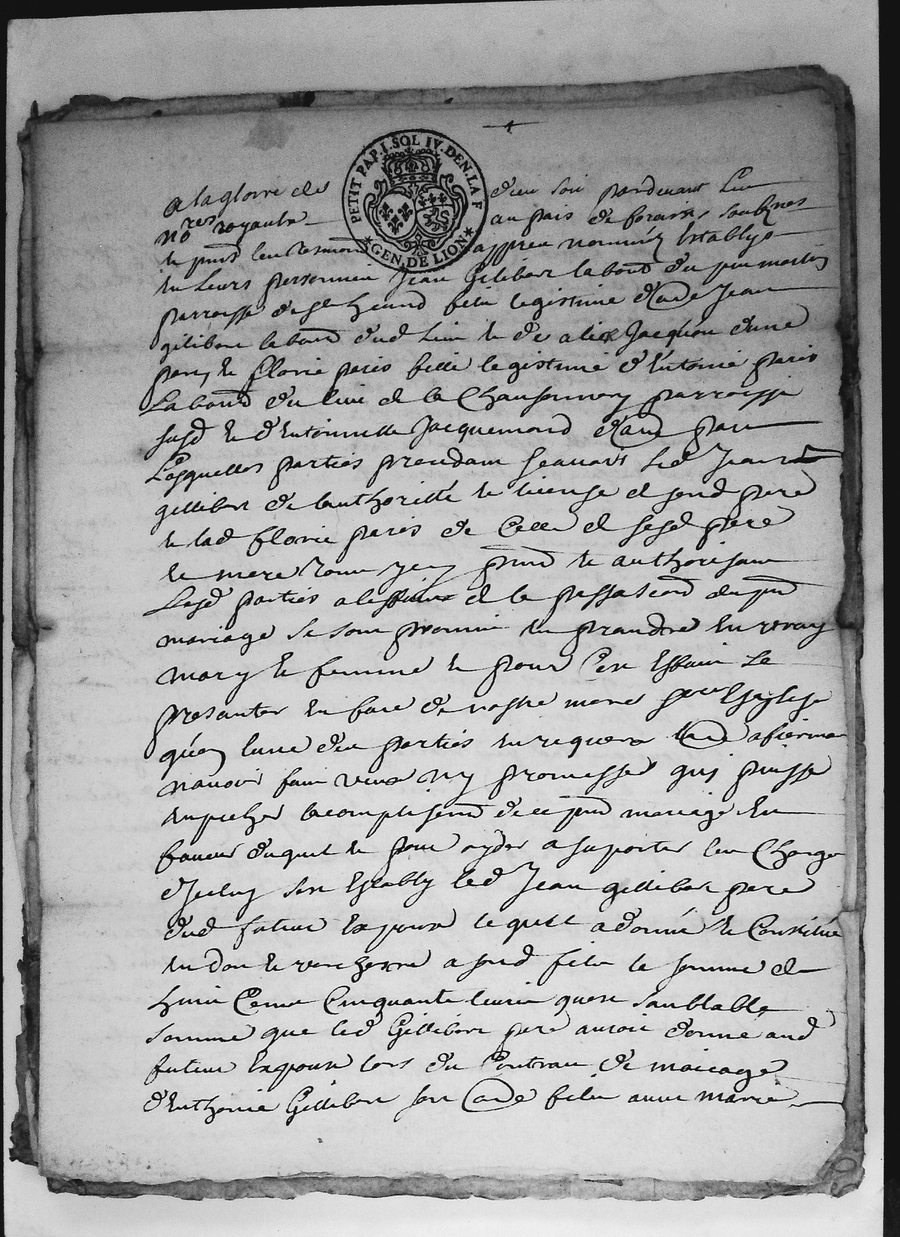 PETIT PAP. I. SOL IV. DEN. LA F
GEN. DE LION
a la gloire de dieu soit pardevant
Nores royaulx au pais de forais soubznes
appres nommés establys
en leurs personnes Jean Gillibert laboureur du
parroisse de St filz legistime d'autre Jean
gilibert laboureur dud lieu et de Jacquon d'une
part, et florie paris fille legistime d'Antoine paris
Labour du lieu de la parroisse
susd et d'Antoinette Jacquemond d'autre part
Lesquelles parties prandam sçauoir led Jean
gillibert de l'authoritté et license de sond pere
et lad florie paris de celle de sesd pere
et mere tous icy pnts et authorisant
Lesd parties a de la du pnt
mariage se sont promis en prandre en vray
mary et femme et pour cest effaict se
presanter en face de nostre mere ste Esglise
qu'en l'une des parties en requera l'autre afierman
n'auoir faict veux ny promesses quy puisse
enpecher lacomplisent de ce pnt mariage en
faueur duquel et pour ayder a suporter les charges
d'iceluy s'est establÿ led Jean gillibert pere
dud futeur expoux lequel a donné et constitué
en don et a sond filz la somme de
huict cent cinquante liures quere sanblable
somme que led Gillibert pere auroit donné aud
futeur expoux lors du contract de mariage
d'Anthoine Gillibert son autre filz auec marie